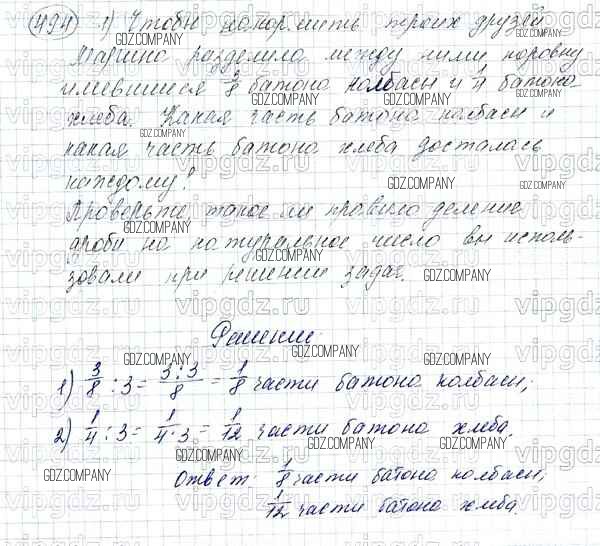 494 1) Чтобы накормить троих друзей
Марина разделила между ними поровну
имевшиеся 3/8 батона колбасы и 1/4 батона
хлеба. Какая часть батона колбасы и
какая часть батона хлеба досталась
каждому?
Проверьте, такое ли правило деления
дроби на натуральное число вы исполь-
зовали при решении задач.
Решение:
1) 3/8 : 3 = 3:3/8 = 1/8 части батона колбасы;
2) 1/4 : 3 = 1/4·3 = 1/12 части батона хлеба.
Ответ: 1/8 части батона колбасы,
1/12 части батона хлеба.
GDZ.COMPANY
vipgdz.ru